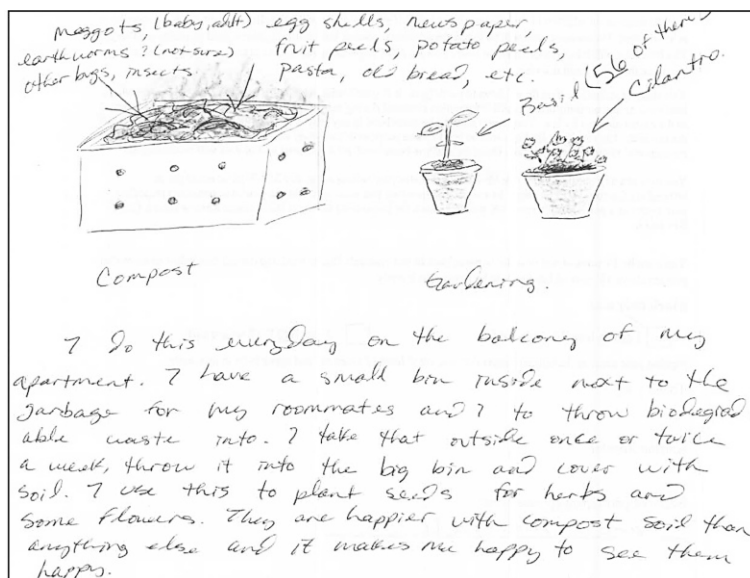 maggots, (baby, adult)
earthworms? (not sure)
other bugs, insects
egg shells, newspaper,
fruit peels, potato peels,
pasta, old bread, etc.
Basil (56 of them)
Cilantro.
Compost
Gardening.
I do this everyday on the balcony of my
apartment. I have a small bin inside next to the
garbage for my roommates and I to throw biodegrad
able waste into. I take that outside once or twice
a week, throw it into the big bin and cover with
soil. I use this to plant seeds for herbs and
some flowers. They are happier with compost soil than
anything else and it makes me happy to see them
happy.